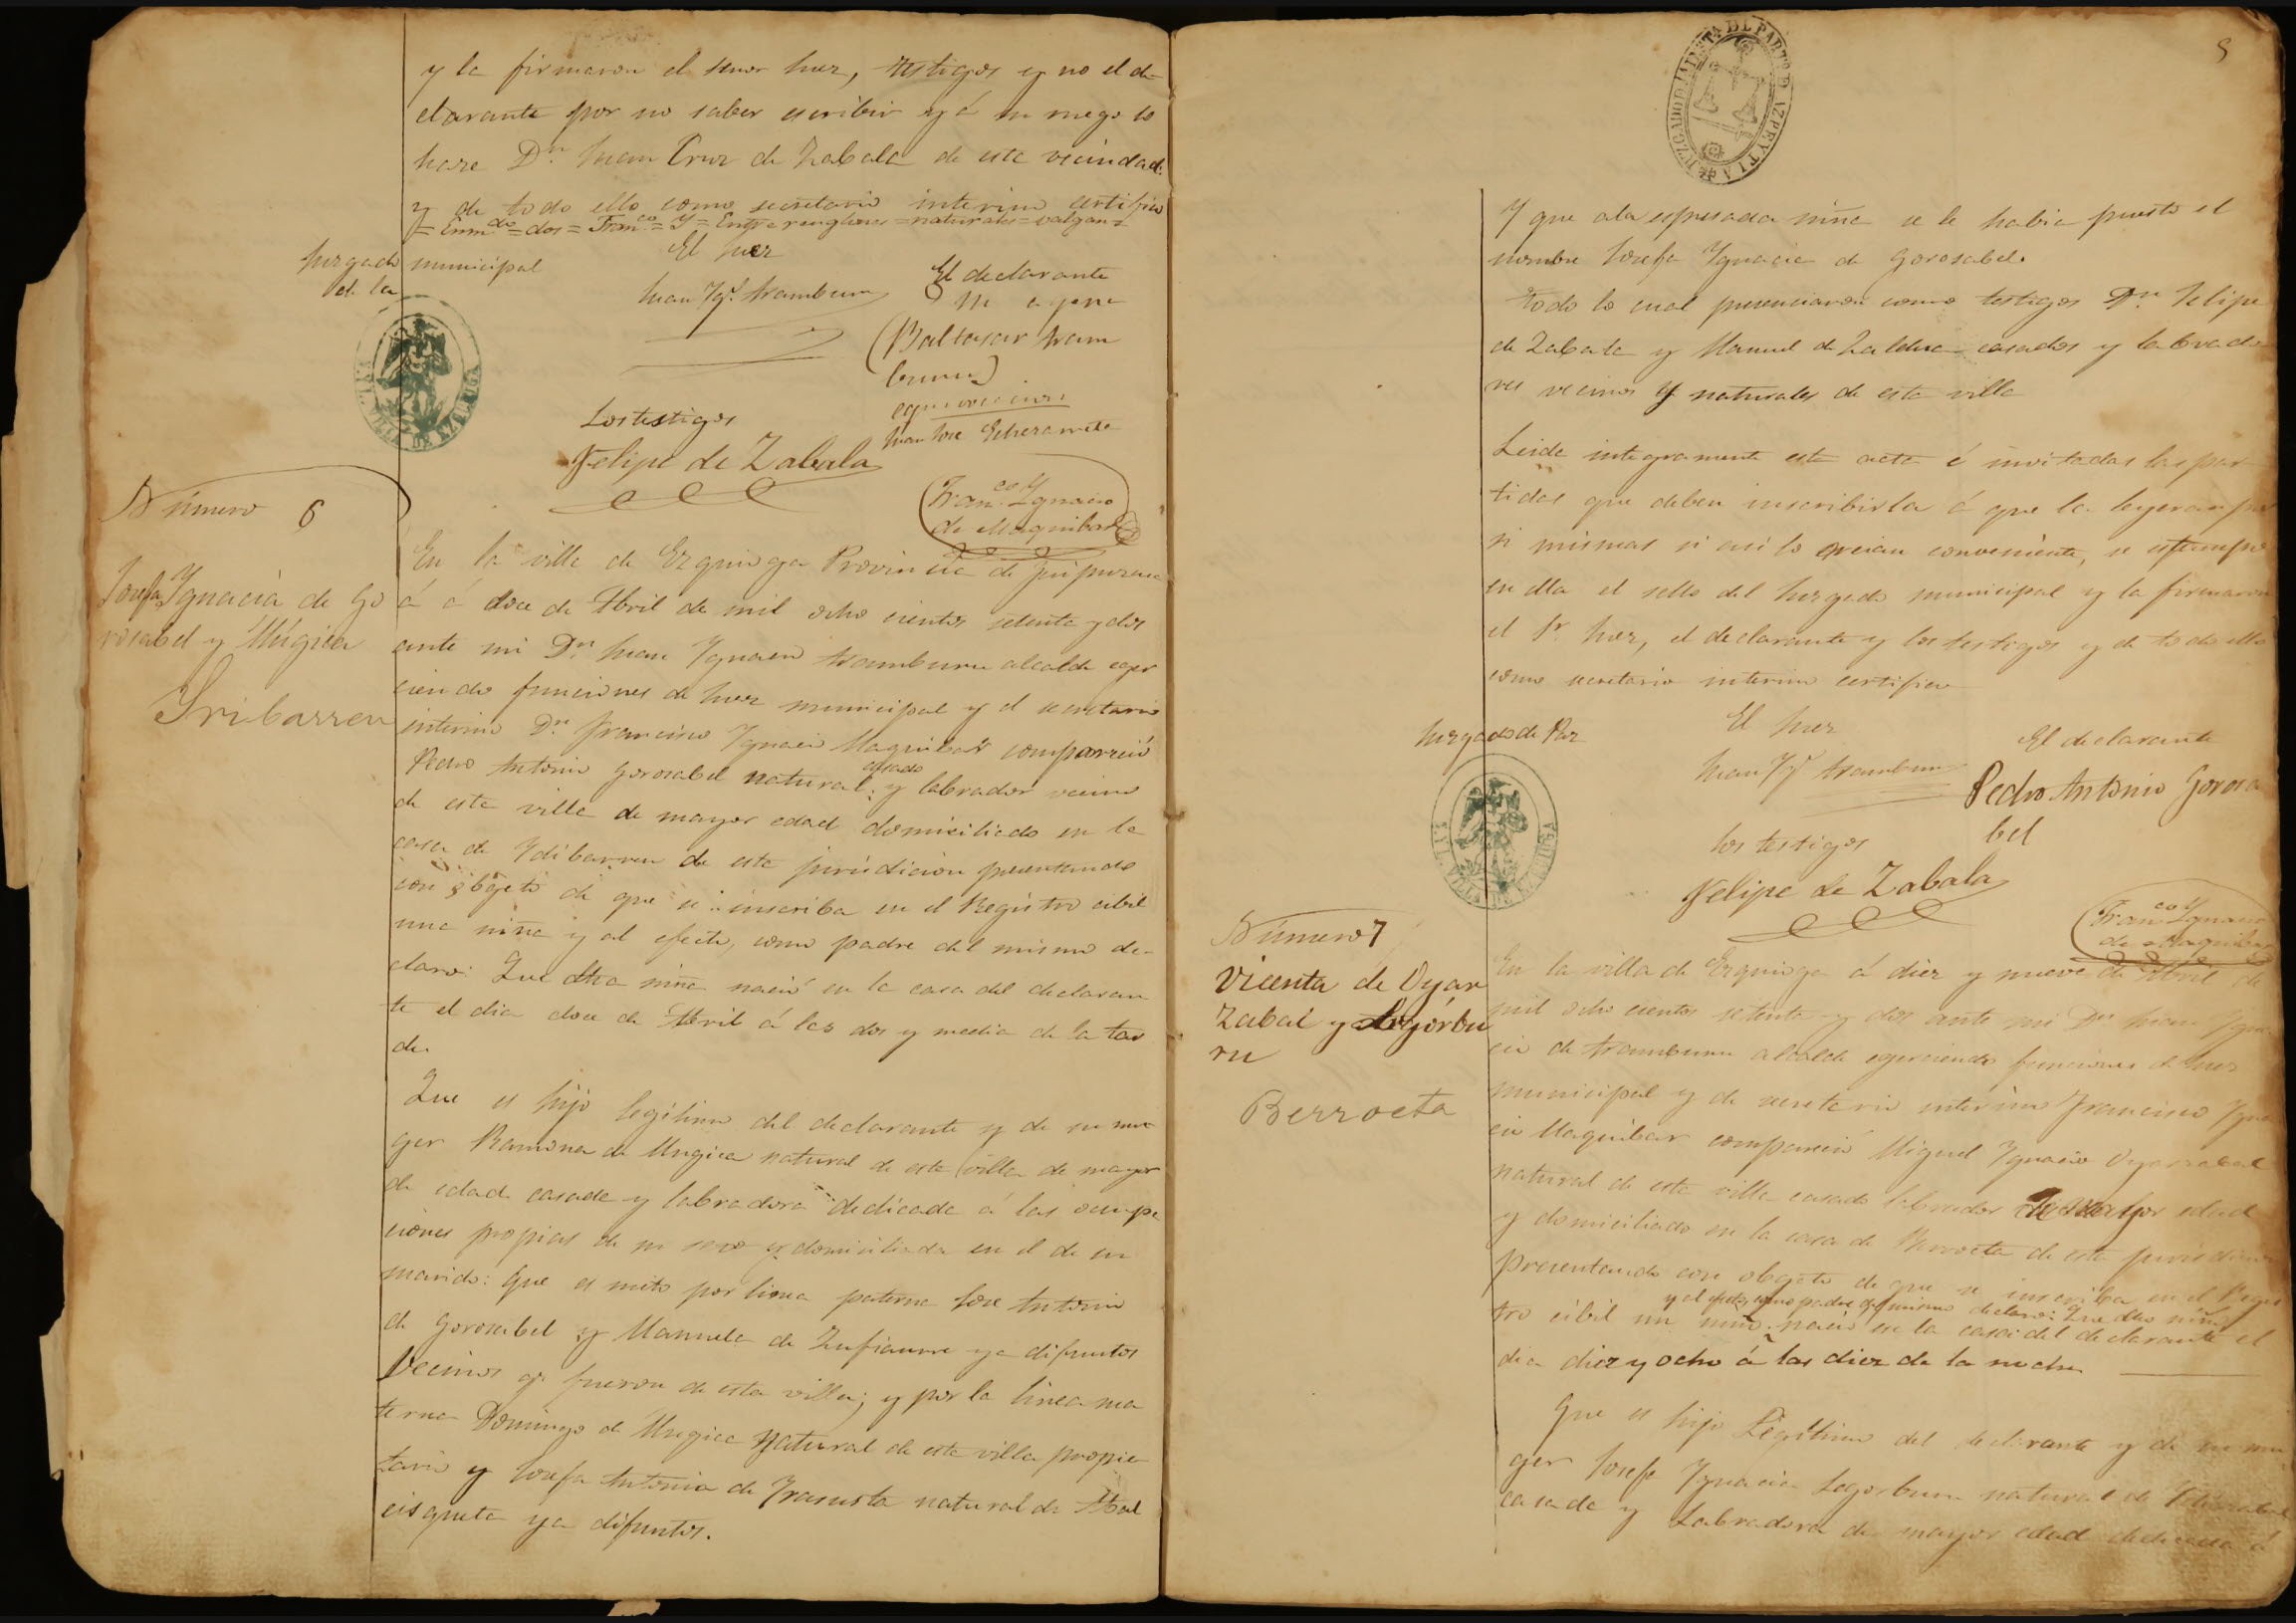 y la firmaron el señor Juez, testigos y no el de-
clarante por no saber escribir y á su ruego lo
hace Dn. Juan Cruz de Zabala de esta vecindad.
y de todo ello como secretario interino certifico
= Enmdo = dos = Franco = Y = Entre renglones = naturales = valgan =
Juzgado municipal
de la
El Juez
Juan Ygo. Aramburu
El declarante
(Baltasar Aram
buru)
equivocacion
Juan Jose Echezarreta
VILLA DE EZQUIOGA
Los testigos
Felipe de Zabala
Franco Y Ygnacio
de Maquibar
Número 6
Josefa Ygnacia de Go
rosabel y Múgica
Iribarren
En la villa de Ezquioga Provincia de Guipuzcoa
á á doce de Abril de mil ocho cientos setenta y dos
ante mi Dn. Juan Ygnacio Aramburu alcalde eger
ciendo funciones de Juez municipal y el secretario
interino Dn. Francisco Ygnacio Maquibar compareció
Pedro Antonio Gorosabel natural; casado y labrador vecino
de esta villa de mayor edad domiciliado en la
casa de Ydibarren de esta jurisdicion presentando
con objeto de que se inscriba en el Registro cibil
una niña y al efecto, como padre del mismo de-
claro: Que dha niña nació en la casa del declaran
te el dia doce de Abril á las dos y media de la tar
de.
Que es hijo legitimo del declarante y de su mu
ger Ramona de Mugica natural de esta villa de mayor
de edad casada y labradora dedicada á las ocupa
ciones propias de su sexo y domiciliada en el de su
marido: Que es nieto por linea paterna Jose Antonio
de Gorosabel y Manuela de Zufiaurre ya difuntos
Vecinos qe. fueron de esta villa; y por la linea ma
terna Domingo de Mugica natural de esta villa propie
tario y Josefa Antonia de Irasusta natural de Abal
cisqueta ya difuntos.
5
JUZGADO DE 1A INSTA DEL PARTO DE AZPEYTIA
Y que ala espresada niña se le habia puesto el
nombre Josefa Ygnacia de Gorosabel.
Todo lo cual presenciaron como testigos Dn. Felipe
de Zabala y Manuel de Zaldua casados y labrado
res vecinos y naturales de esta villa
Leida integramente esta acta é invitadas las par
tidas que deben inscribirla á que la leyeran por
si mismas si asi lo creian conveniente, se estampo
en ella el sello del Juzgado municipal y la firmaron
el Sr. Juez, el declarante y los testigos y de todo ello
como secretario interino certifico
Juzgado de Paz
El Juez
Juan Ygo. Aramburu
El declarante
Pedro Antonio Gorosa
bel
VILLA DE EZQUIOGA
los testigos
Felipe de Zabala
Franco Y Ygnacio
de Maquibar
Número 7
Vicenta de Oyar
Zabal y Legórbu
ru
Berroeta
En la villa de Ezquioga á diez y nueve de Abril de
mil ocho cientos setenta y dos ante mi Dn Juan Ygna
cio de Aramburu alcalde egerciendo funciones de Juez
municipal y de secretario interino Francisco Ygna
cio Maquibar compareció Miguel Ygnacio Oyarzabal
natural de esta villa casado labrador de mayor edad
y domiciliado en la casa de Berroeta de esta jurisdicion
presentando con objeto de que se inscriba en el Regis
y al efecto, como padre del mismo declaro: Que dho niño
tro cibil un niño. nació en la casa del declarante el
dia diez y ocho á las diez de la noche.
Que es hijo Legítimo del declarante y de su mu
ger Josefa Ygnacia Legorburu natural de
casada y Labradora de mayor edad dedicada á